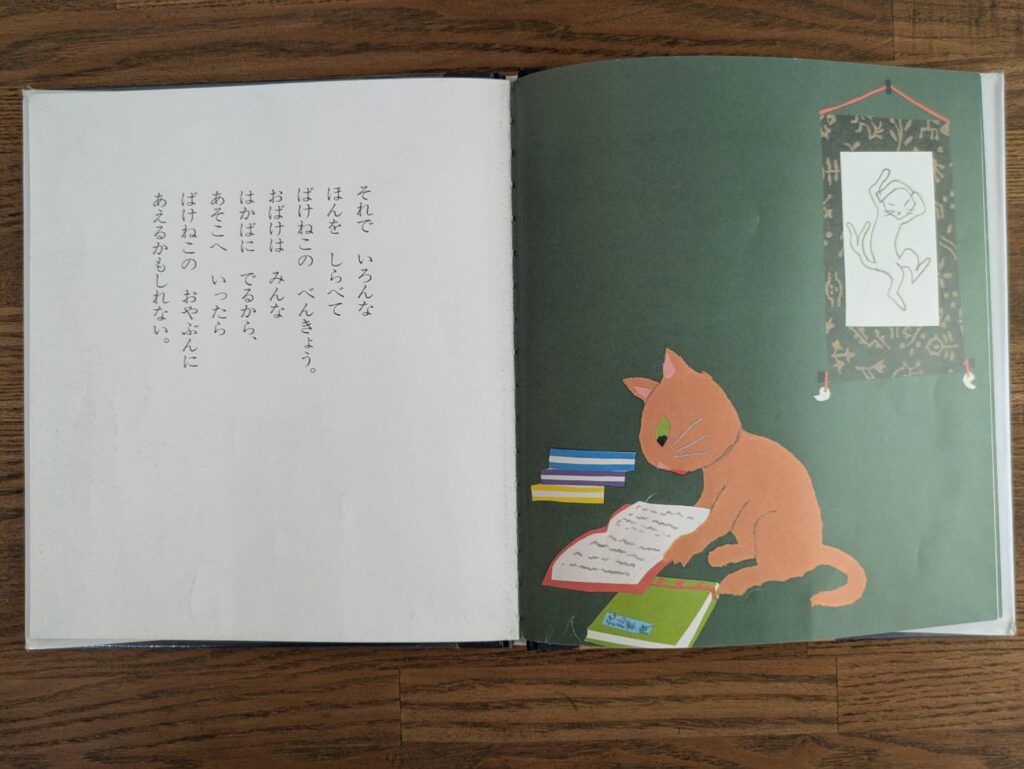 それで　いろんな
ほんを　しらべて
ばけねこの　べんきょう。
おばけは　みんな
はかばに　でるから、
あそこへ　いったら
ばけねこの　おやぶんに
あえるかもしれない。